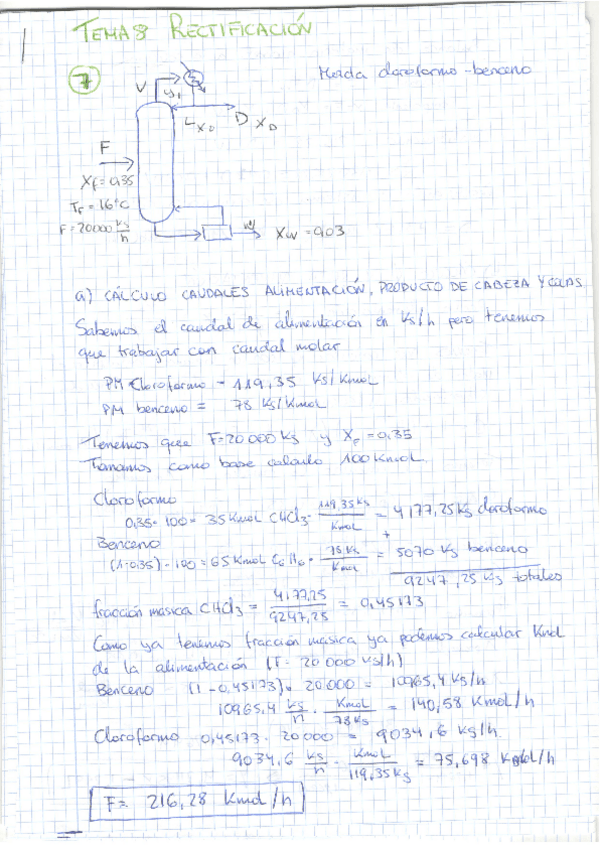 TEMA 8 RECTIFICACIÓN
7
Mezcla cloroformo-benceno
V
y₁
L x_D
D x_D
F
X_F = 0,35
T_F = 16°C
F = 20000 Kg/h
W
X_W = 0,03
a) CÁLCULO CAUDALES ALIMENTACIÓN, PRODUCTO DE CABEZA Y COLAS
Sabemos el caudal de alimentación en Kg/h pero tenemos
que trabajar con caudal molar
PM Cloroformo = 119,35 Kg/Kmol
PM benceno = 78 Kg/Kmol
Tenemos que F=20000 Kg y X_F = 0,35
Tomamos como base calculo 100 Kmol.
Cloroformo
0,35 · 100 = 35 Kmol CHCl₃ · 119,35 Kg / Kmol = 4177,25 Kg cloroformo
+
Benceno
(1-0,35) · 100 = 65 Kmol C₆H₆ · 78 Kg / Kmol = 5070 Kg benceno
9247,25 Kg totales
fracción másica CHCl₃ = 4177,25 / 9247,25 = 0,45173
Como ya tenemos fracción masica ya podemos calcular Kmol
de la alimentación (F = 20000 Kg/h)
Benceno (1-0,45173) · 20000 = 10965,4 Kg/h
10965,4 Kg/h · Kmol / 78 Kg = 140,58 Kmol/h
Cloroformo 0,45173 · 20000 = 9034,6 Kg/h.
9034,6 Kg/h · Kmol / 119,35 Kg = 75,698 Kmol/h
F = 216,28 Kmol/h